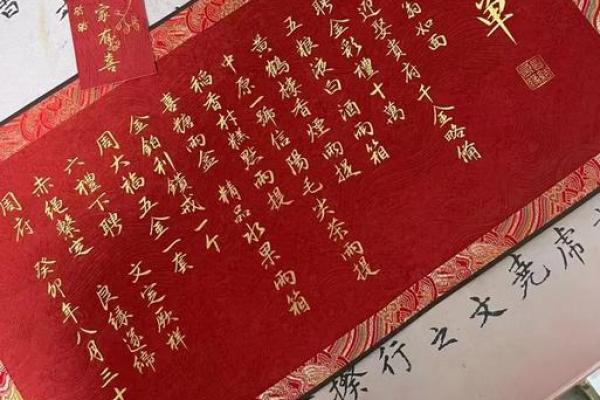 單
如面
迎娶貴府千金略備
聘金彩禮十萬
五糧液白酒兩箱
黃鶴樓香煙兩提
中原一號信陽毛尖茶兩提
稻香村糕點兩提 精品水果兩箱
喜糖兩盒
金鉑利鑽戒一个
周大福五金一套
六禮下聘 文定厥祥
赤繩繫定 良緣遂締
周府 癸卯年八月三十
家有喜
席堯文之行揆